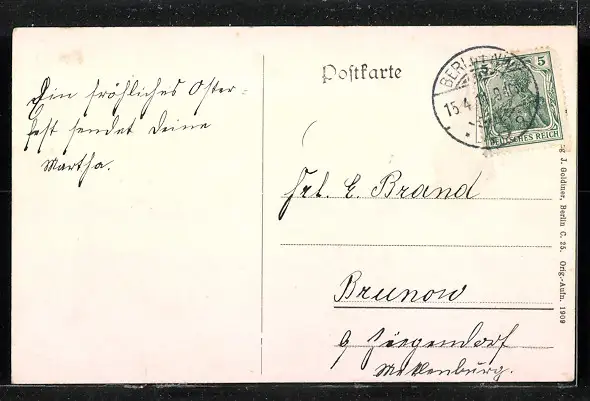 Ein fröhliches Oster-
fest sendet Deine
Martha.
Postkarte
BERLIN
15.4.
5
DEUTSCHES REICH
Frl. E. Brand
Brunow
b/ Ziegendorf
Mecklenburg.
J. Goldiner, Berlin C. 25. Orig.-Aufn. 1909